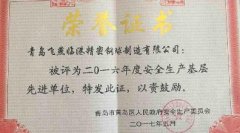 荣誉证书
青岛飞燕临港精密钢球制造有限公司：
被评为二〇一六年度安全生产基层
先进单位，特发此证，以资鼓励。
青岛市黄岛区人民政府安全生产委员会
二〇一七年五月